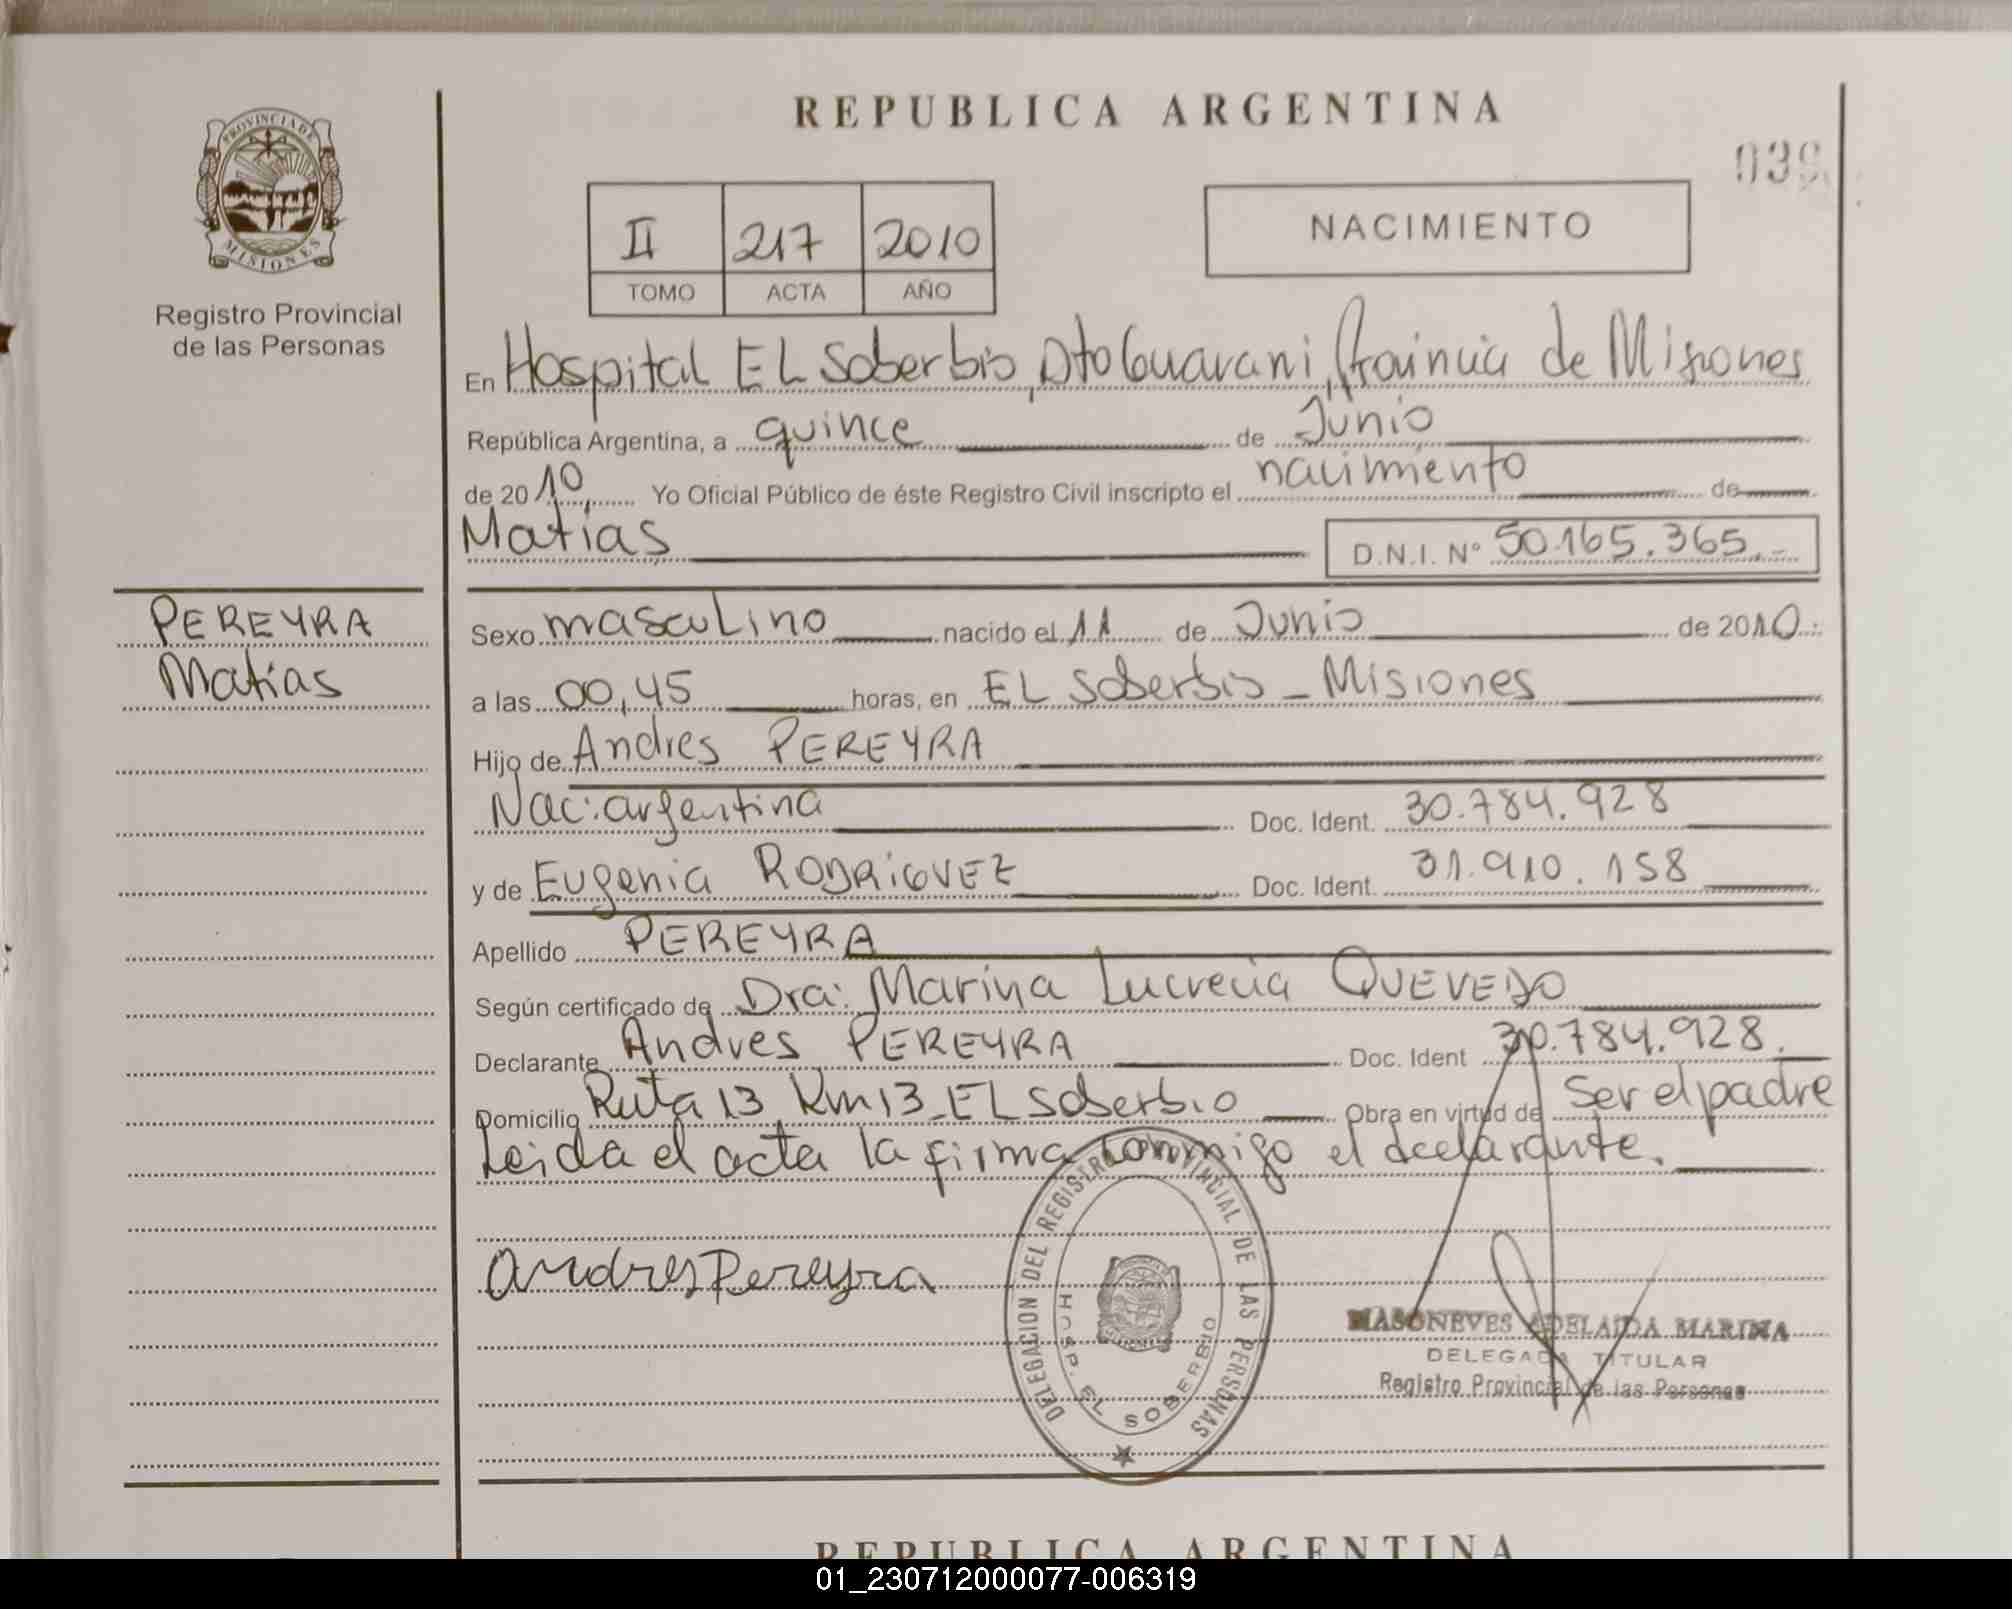 REPUBLICA ARGENTINA
PROVINCIA DE
MISIONES
Registro Provincial
de las Personas
II 217 2010
TOMO ACTA AÑO
NACIMIENTO
En Hospital EL Soberbio, Dto Guarani, Provincia de Misiones
República Argentina, a quince de Junio
de 2010, Yo Oficial Público de éste Registro Civil inscripto el nacimiento de
Matías D.N.I. Nº 50.165.365.-
PEREYRA
Matías
Sexo masculino nacido el 11 de Junio de 2010
a las 00,45 horas, en EL Soberbio - Misiones
Hijo de Andres PEREYRA
Nac: argentina Doc. Ident. 30.784.928
y de Eugenia RODRIGUEZ Doc. Ident. 31.910.158
Apellido PEREYRA
Según certificado de Dra: Marina Lucrecia QUEVEDO
Declarante Andres PEREYRA Doc. Ident 30.784.928.
Domicilio Ruta 13 Km 13 - EL Soberbio Obra en virtud de Ser el padre
Leida el acta la firma conmigo el declarante.
Andres Pereyra
DELEGACION DEL REGISTRO PROVINCIAL DE LAS PERSONAS
HOSP. EL SOBERBIO
MASONEVES ADELAIDA MARINA
DELEGADA TITULAR
Registro Provincial de las Personas
REPUBLICA ARGENTINA
01_230712000077-006319